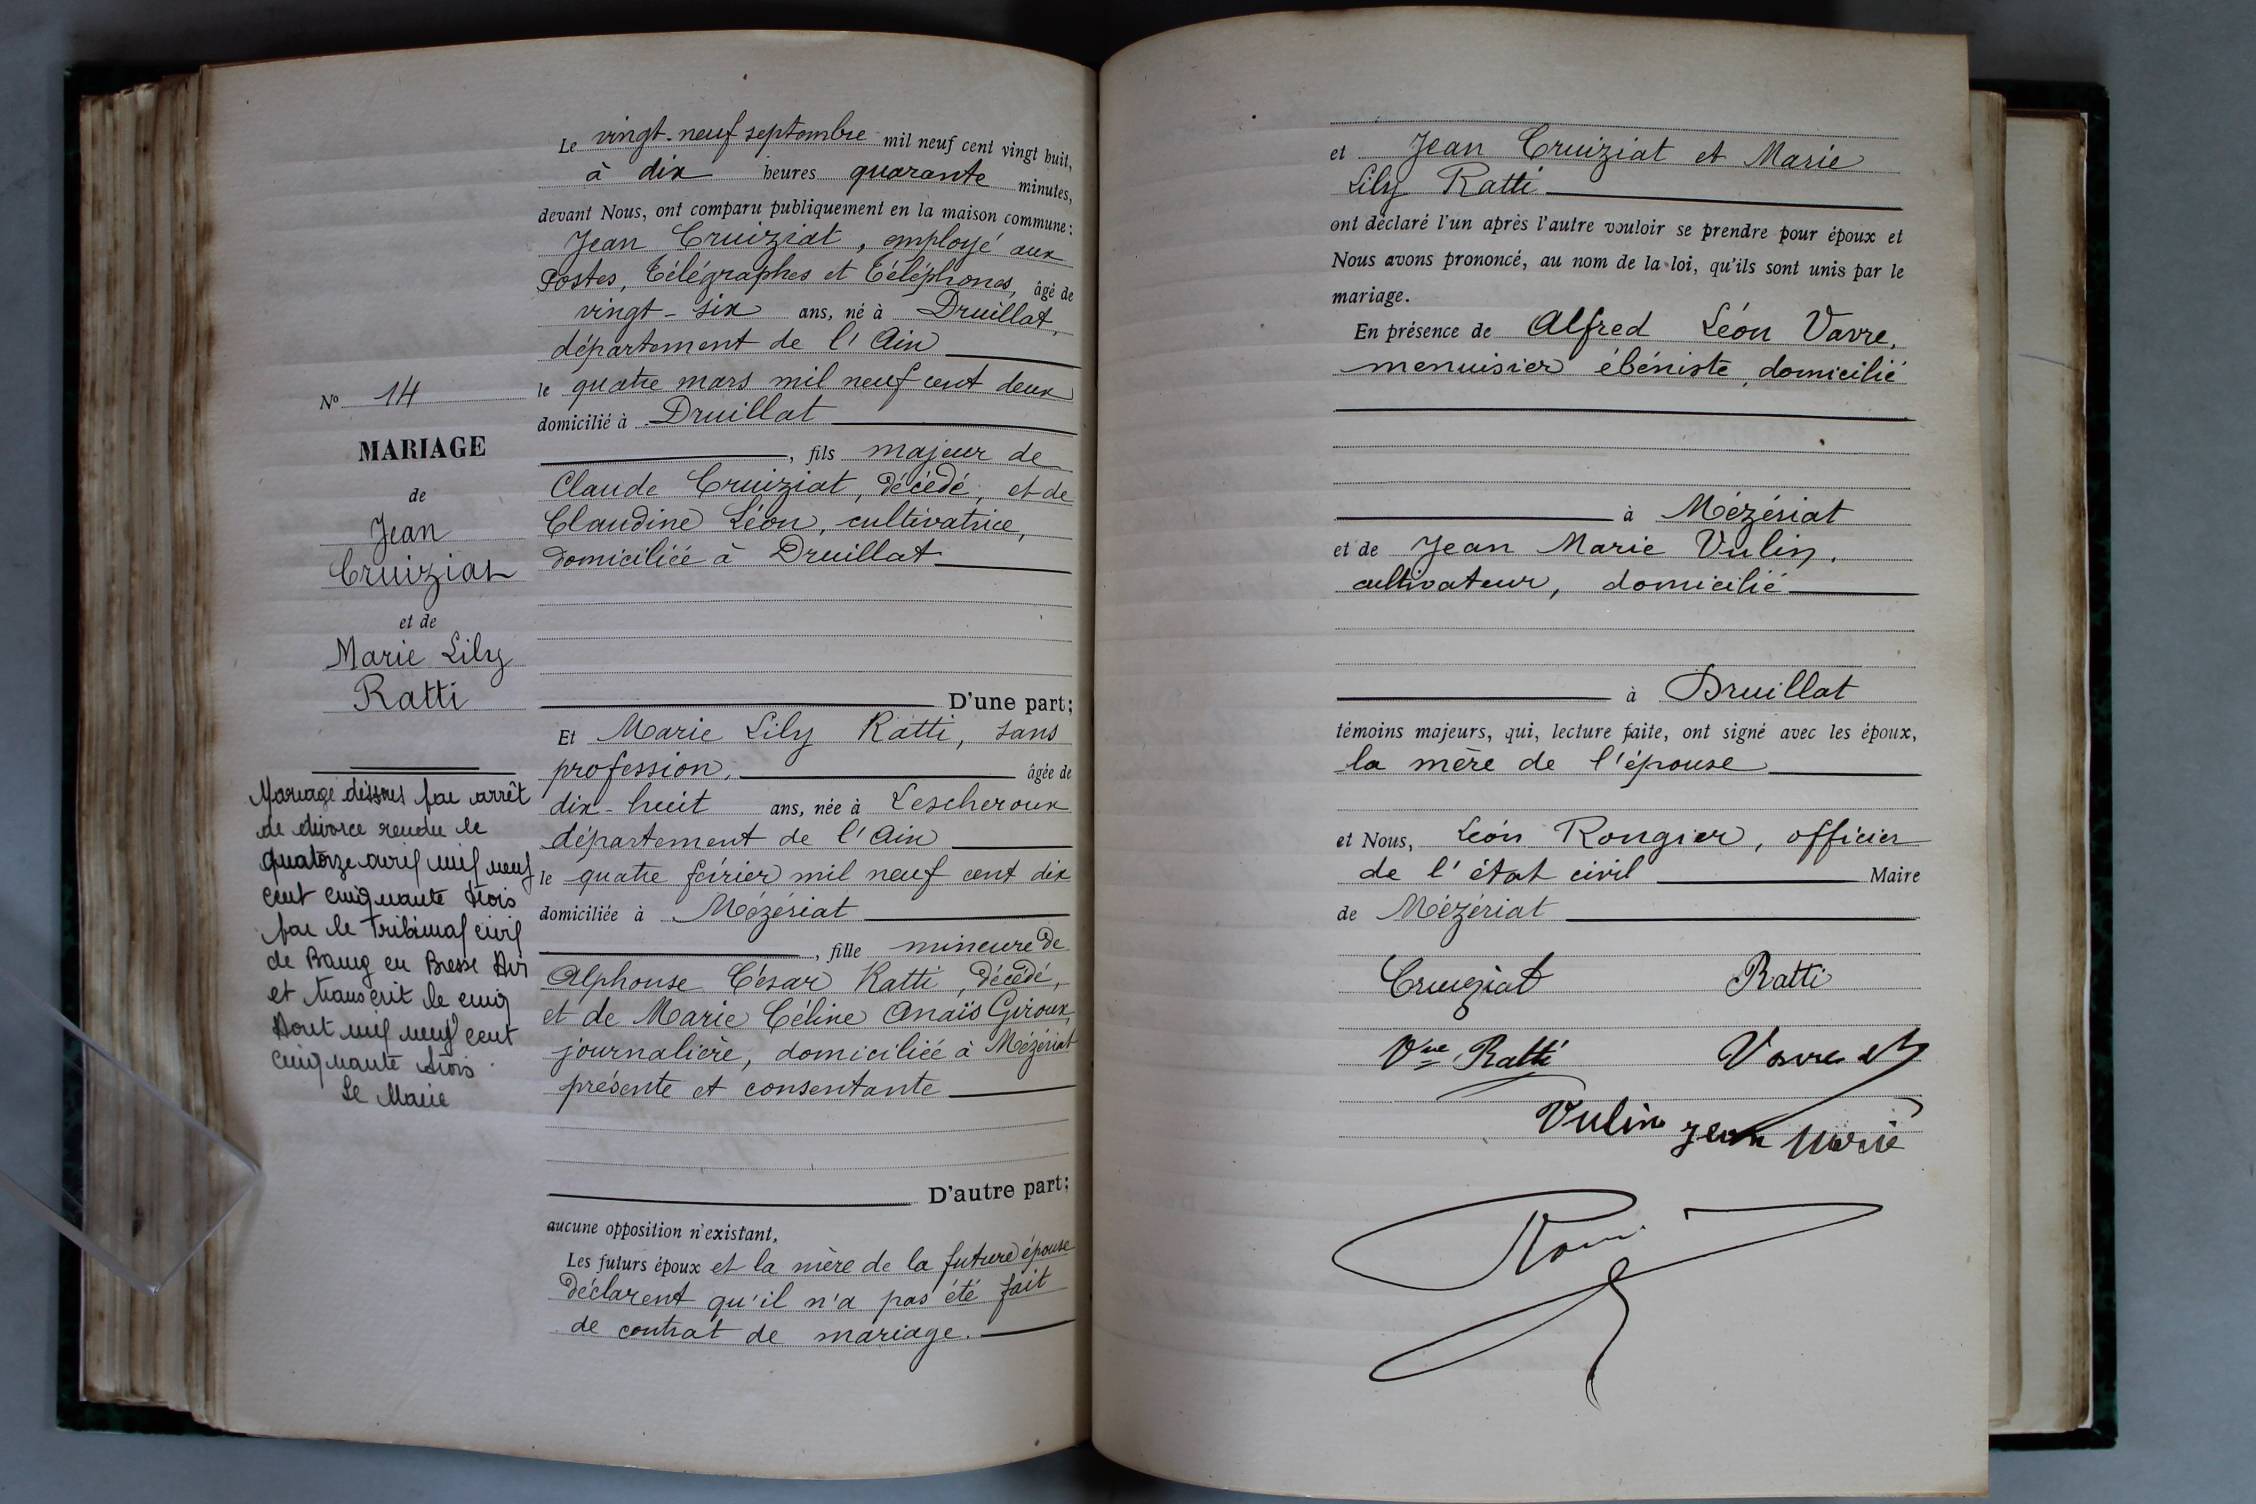 Nº 14
MARIAGE
de
Jean
Cruiziat
et de
Marie Lily
Ratti
Mariage dissous par arrêt
de divorce rendu le
quatorze avril mil neuf
cent cinquante trois
par le Tribunal civil
de Bourg en Bresse Ain
et transcrit le cinq
Aout mil neuf cent
cinquante trois
Le Maire
Le vingt-neuf septembre mil neuf cent vingt huit,
à dix heures quarante minutes,
devant Nous, ont comparu publiquement en la maison commune:
Jean Cruiziat, employé aux
Postes, Télégraphes et Téléphones, âgé de
vingt-six ans, né à Druillat,
département de l'Ain
le quatre mars mil neuf cent deux
domicilié à Druillat
, fils majeur de
Claude Cruiziat, décédé, et de
Claudine Léon, cultivatrice,
domiciliée à Druillat
D'une part;
Et Marie Lily Ratti, sans
profession, âgée de
dix-huit ans, née à Lescheroux
département de l'Ain
le quatre février mil neuf cent dix
domiciliée à Mézériat
, fille mineure de
Alphonse César Ratti, décédé,
et de Marie Céline Anaïs Giroux,
journalière, domiciliée à Mézériat
présente et consentante
D'autre part;
aucune opposition n'existant,
Les futurs époux et la mère de la future épouse
déclarent qu'il n'a pas été fait
de contrat de mariage.
et Jean Cruiziat et Marie
Lily Ratti
ont déclaré l'un après l'autre vouloir se prendre pour époux et
Nous avons prononcé, au nom de la loi, qu'ils sont unis par le
mariage.
En présence de Alfred Léon Vavre,
menuisier ébéniste, domicilié
à Mézériat
et de Jean Marie Vulin,
cultivateur, domicilié
à Druillat
témoins majeurs, qui, lecture faite, ont signé avec les époux,
la mère de l'épouse
et Nous, Léon Rongier, officier
de l'état civil Maire
de Mézériat
Cruiziat Ratti
Vve Ratti Vavre
Vulin Jean Marie